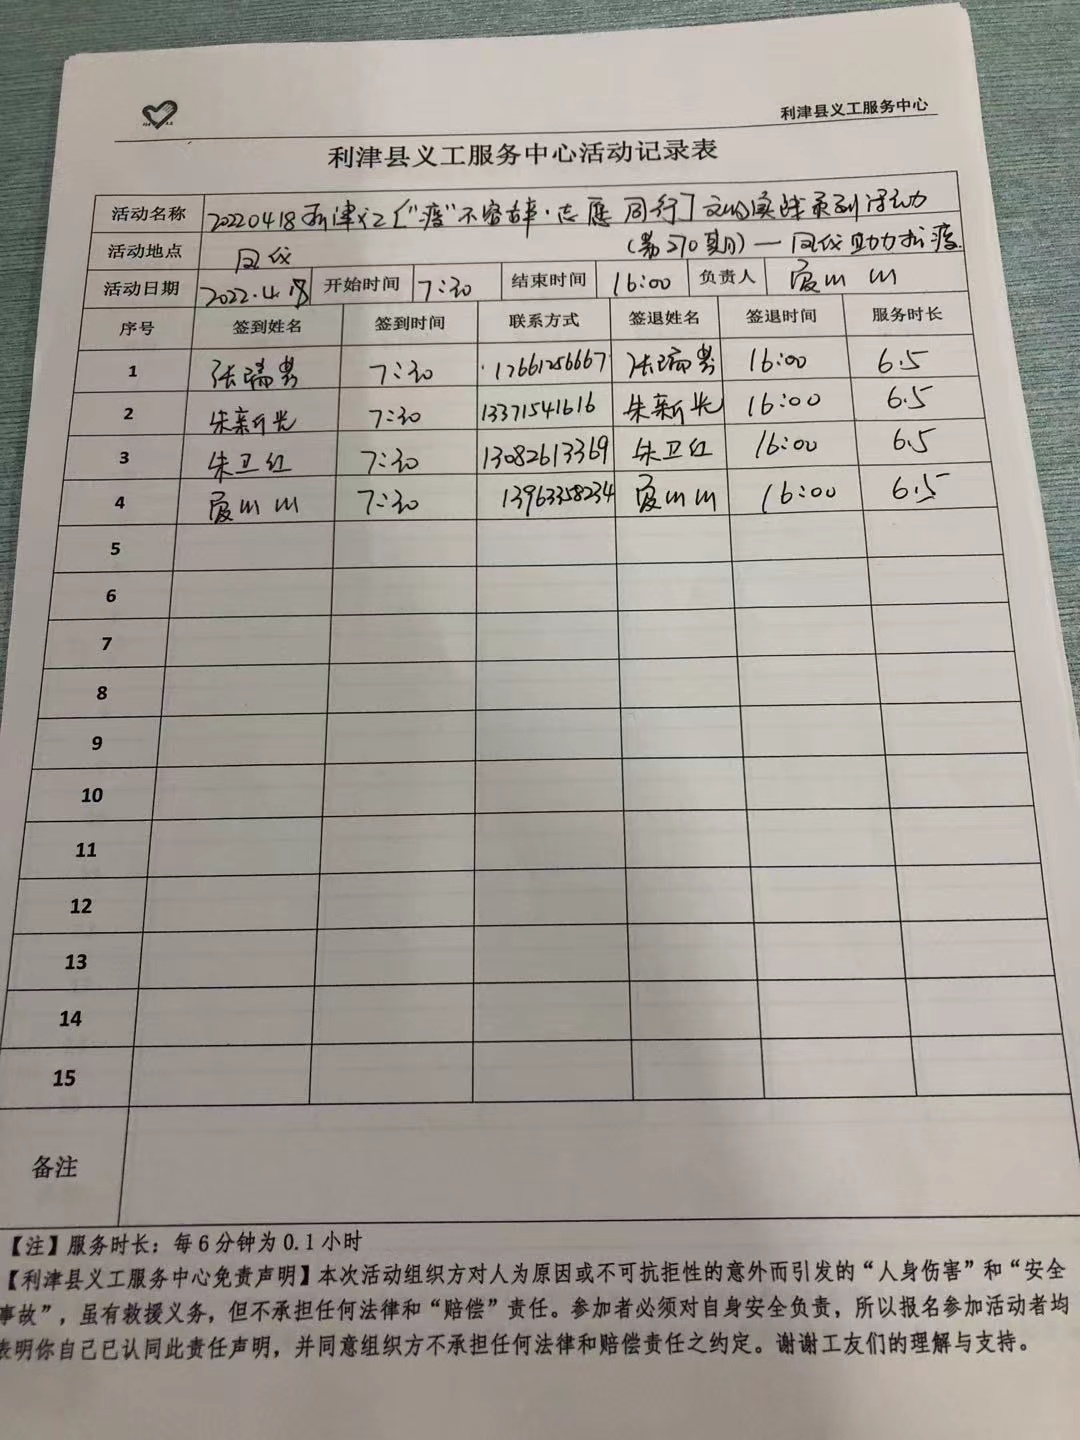 利津县义工服务中心
利津县义工服务中心活动记录表
活动名称 20220418利津义工["疫"不容辞·志愿同行]文明实践系列活动
活动地点 凤仪 (第270期)—凤仪助力抗疫
活动日期 2022.4.18 开始时间 7:30 结束时间 16:00 负责人 山山
序号 签到姓名 签到时间 联系方式 签退姓名 签退时间 服务时长
1 张瑞 7:30 17661256667 张瑞 16:00 6.5
2 朱新光 7:30 13371541616 朱新光 16:00 6.5
3 朱卫红 7:30 13082613369 朱卫红 16:00 6.5
4 山山 7:30 13963358234 山山 16:00 6.5
5
6
7
8
9
10
11
12
13
14
15
备注
【注】服务时长：每6分钟为0.1小时
【利津县义工服务中心免责声明】本次活动组织方对人为原因或不可抗拒性的意外而引发的“人身伤害”和“安全
事故”，虽有救援义务，但不承担任何法律和“赔偿”责任。参加者必须对自身安全负责，所以报名参加活动者均
表明你自己已认同此责任声明，并同意组织方不承担任何法律和赔偿责任之约定。谢谢工友们的理解与支持。